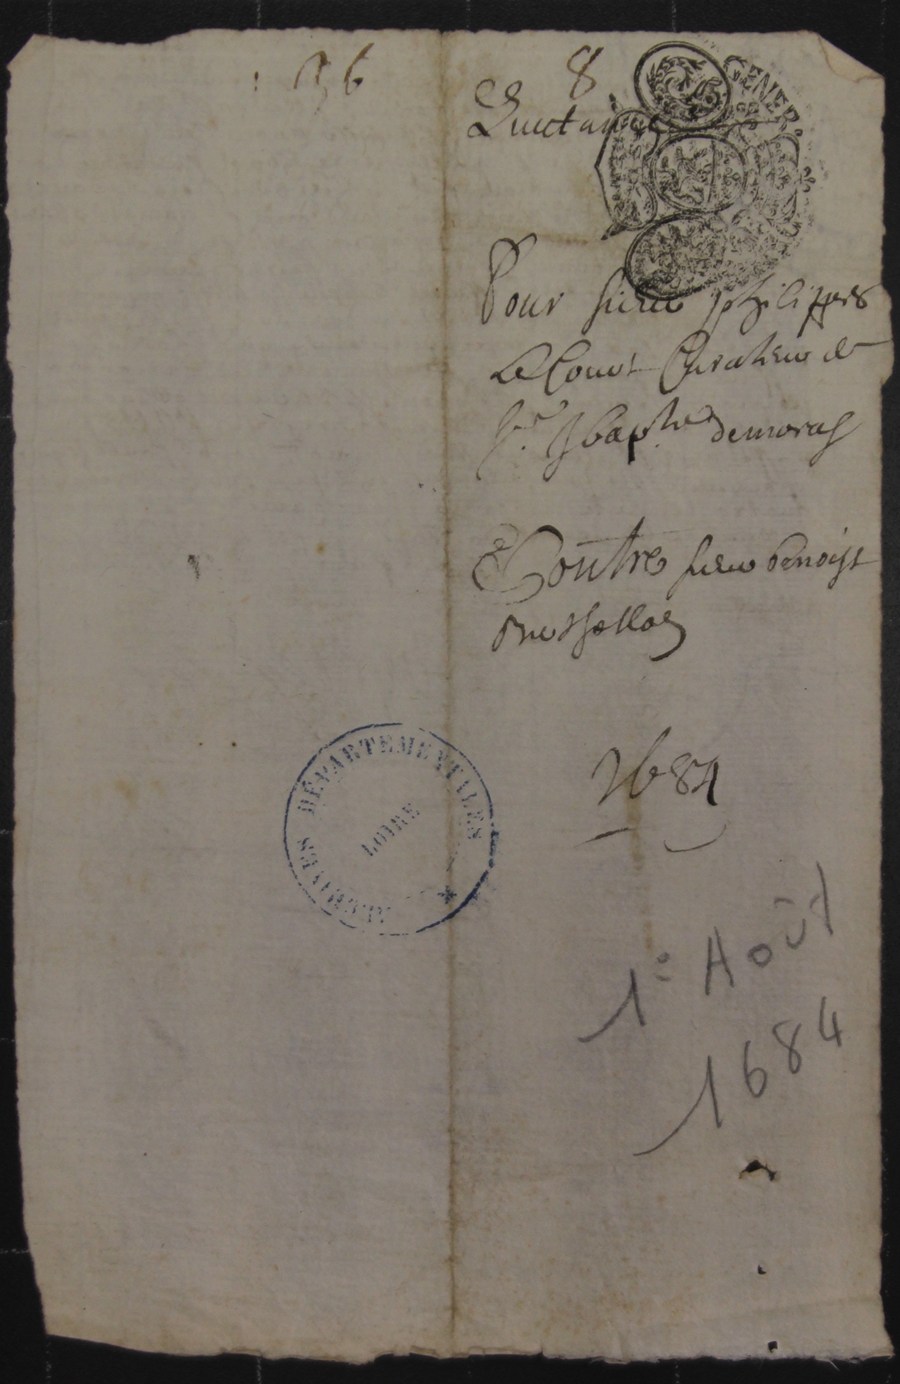 96
8
Quictance
GENER.
Pour sieur philippes
Le Conte Curateur de
Sr. Jbapte demoras
Contre sieur benoist
1684
ARCHIVES DÉPARTEMENTALES
LOIRE
1e Août
1684